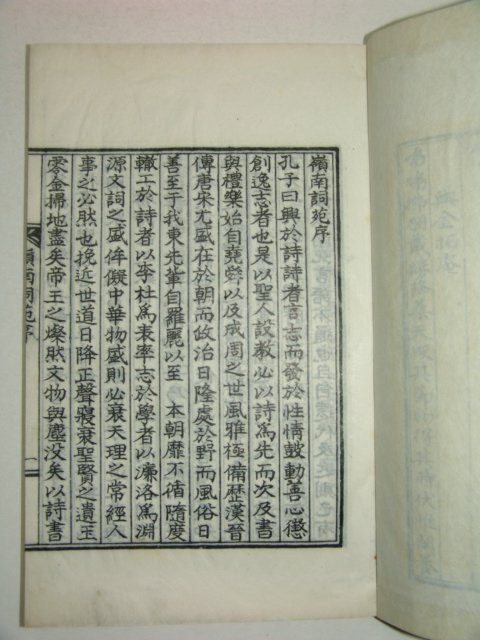 嶺南詞苑序
孔子曰興於詩詩者言志而發於性情鼓動善心懲
創逸志者也是以聖人設敎必以詩爲先而次及書
與禮樂始自堯舜以及成周之世風雅極備歷漢晉
傳唐宋尤盛在於朝而政治日隆處於野而風俗日
善至于我東先輩自羅麗以至 本朝靡不循隨度
轍工於詩者以李杜爲表率志於學者以濂洛爲淵
源文詞之盛侔儗中華物盛則必衰天理之常經人
事之必然也挽近世道日降正聲寢衰聖賢之遺玉
零金掃地盡矣帝王之燦然文物與塵没矣以詩書
嶺南詞苑序
一